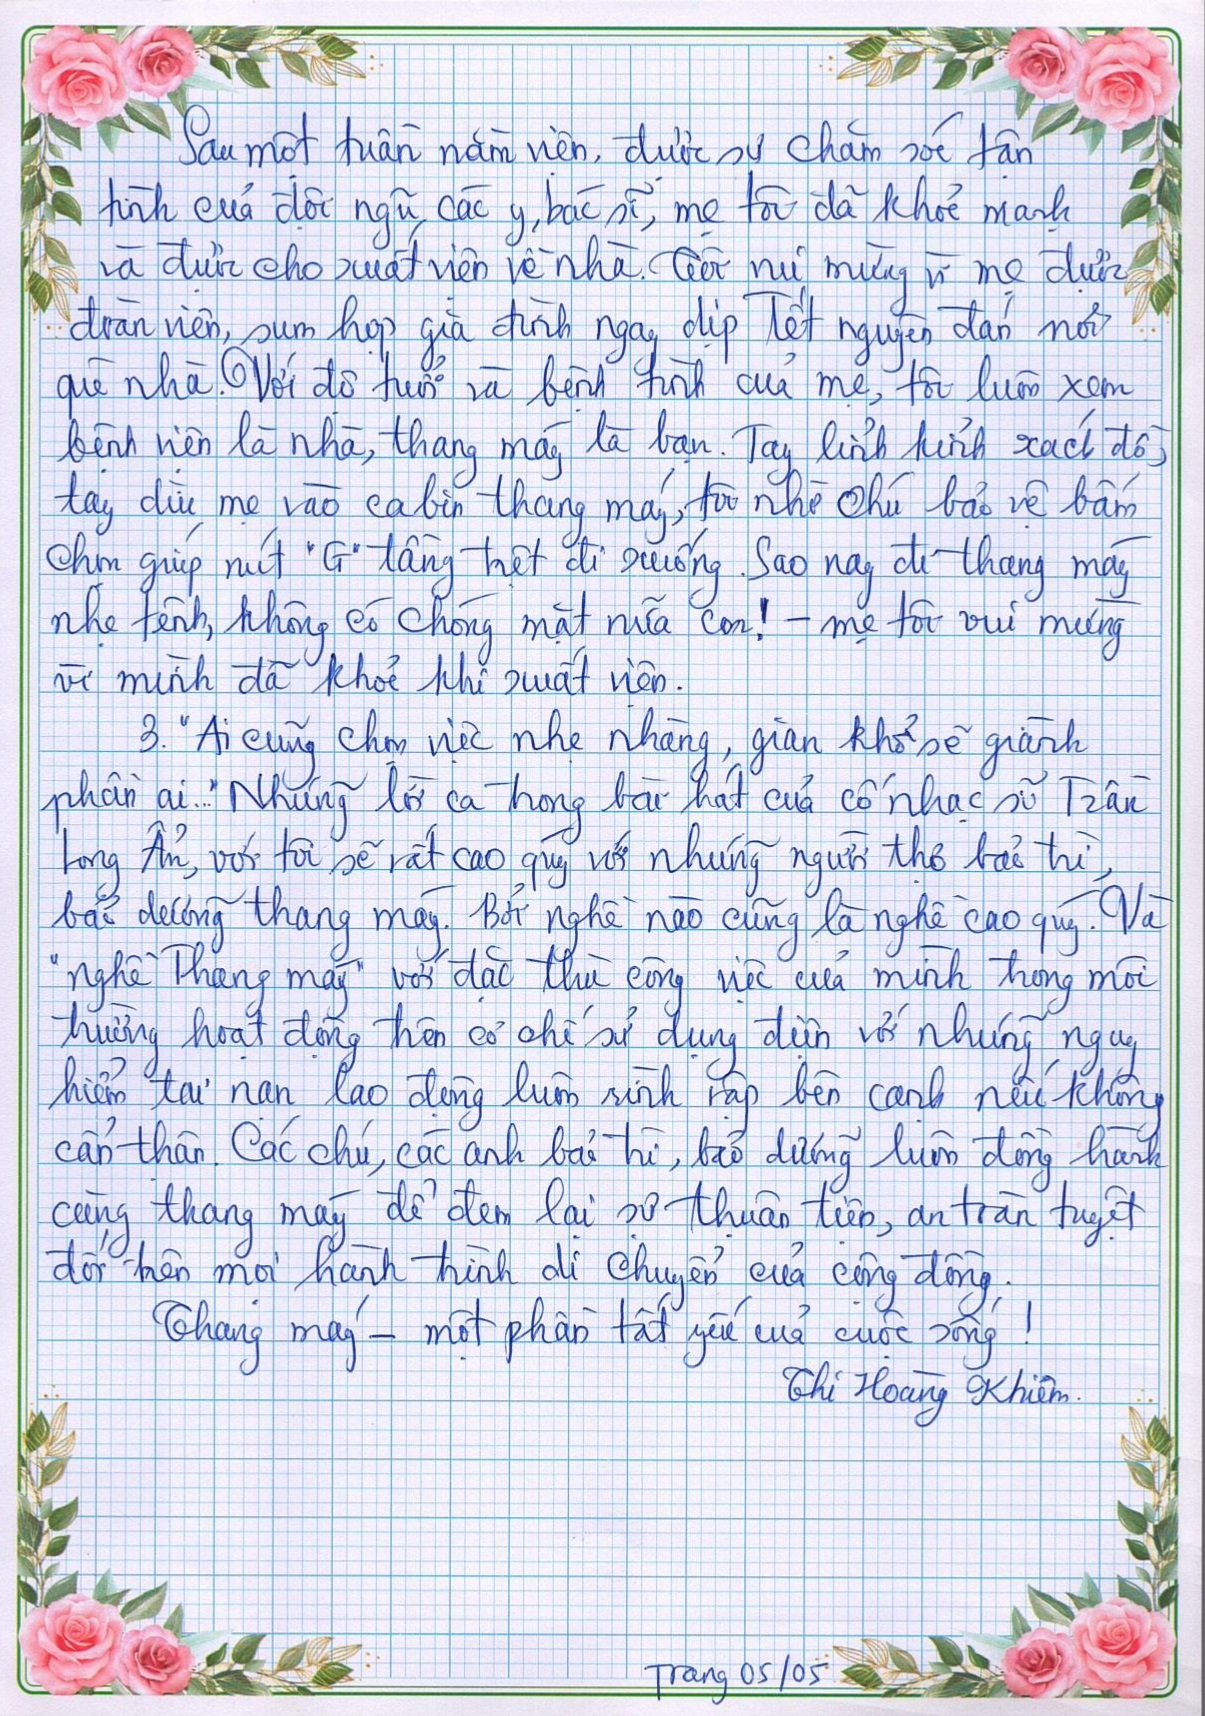 Sau một tuần nằm viện, được sự chăm sóc tận
tình của đội ngũ các y, bác sĩ, mẹ tôi đã khoẻ mạnh
và được cho xuất viện về nhà. Tôi vui mừng vì mẹ được
đoàn viên, sum họp gia đình ngay dịp Tết nguyên đán nơi
quê nhà. Với độ tuổi và bệnh tình của mẹ, tôi luôn xem
bệnh viện là nhà, thang máy là bạn. Tay lỉnh kỉnh xách đồ,
tay dìu mẹ vào cabin thang máy, tôi nhờ chú bảo vệ bấm
chọn giúp nút "G" tầng trệt đi xuống. Sao nay đi thang máy
nhẹ tênh, không có chóng mặt nữa con! – mẹ tôi vui mừng
vì mình đã khoẻ khi xuất viện.
3. "Ai cũng chọn việc nhẹ nhàng, gian khổ sẽ giành
phần ai..." Những lời ca trong bài hát của cố nhạc sĩ Trần
Long Ẩn, với tôi sẽ rất cao quý với những người thợ bảo trì,
bảo dưỡng thang máy. Bởi nghề nào cũng là nghề cao quý. Và
"nghề Thang máy" với đặc thù công việc của mình trong môi
trường hoạt động trên cơ chế sử dụng điện với những nguy
hiểm tai nạn lao động luôn rình rập bên cạnh nếu không
cẩn thận. Các chú, các anh bảo trì, bảo dưỡng luôn đồng hành
cùng thang máy để đem lại sự thuận tiện, an toàn tuyệt
đối trên mọi hành trình di chuyển của cộng đồng.
Thang máy – một phần tất yếu của cuộc sống!
Thi Hoàng Khiêm.
Trang 05/05